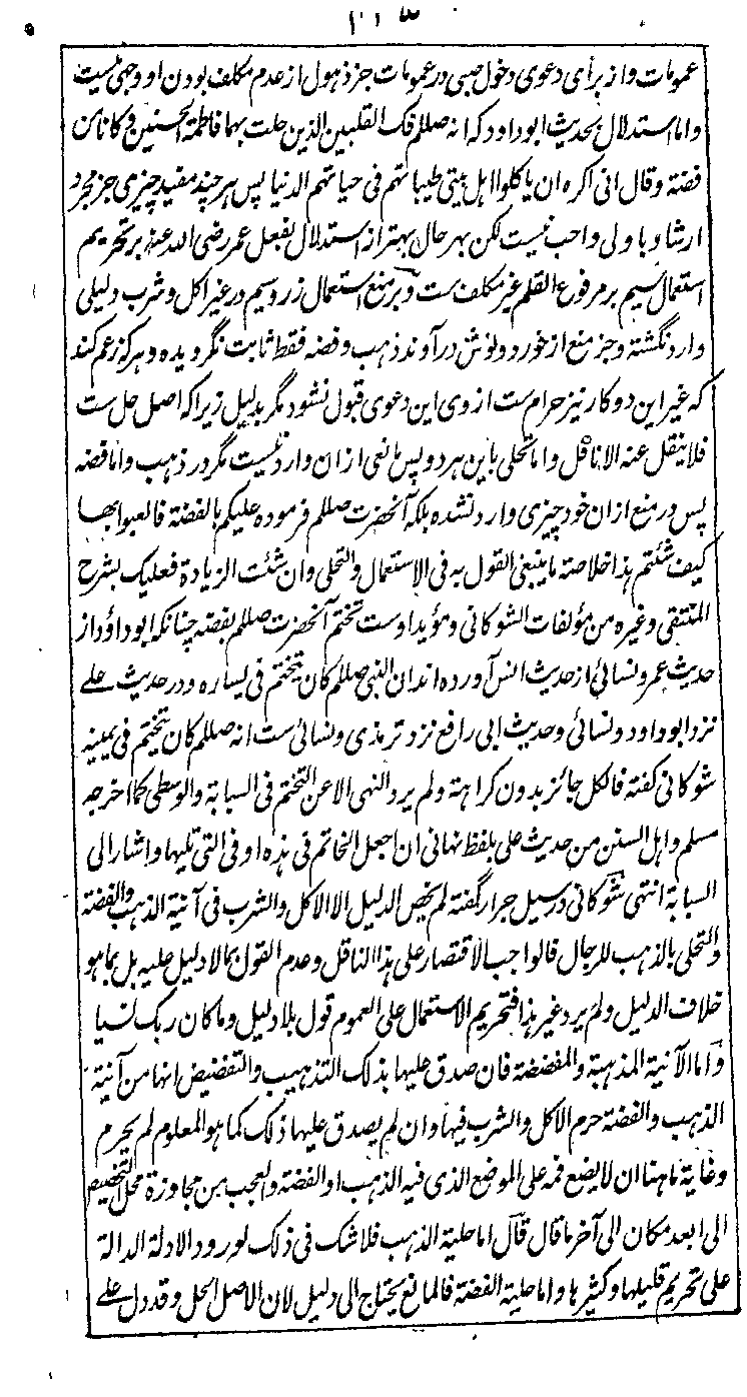 ۲۱۳
عمومات و از برای دعوی دخول صبی در عمومات جز ذهول از عدم مکلف بودن او وجهی نیست
و اما استدلال بحدیث ابو داود که انه صللم فک القلبین الذین حلت بهما فاطمة الحسنین و کانا من
فضة و قال انی اکره ان یاکلوا اهل بیتی طیباتهم فی حیاتهم الدنیا پس هر چند مفید چیزی جز مجرد
ارشاد باولی واجب نیست لکن بهر حال بهتر از استدلال بفعل عمر رضی الله عنه بر تحریم
استعمال سیم بر مرفوع القلم غیر مکلف ست و بر منع استعمال زر و سیم در غیر اکل و شرب دلیلی
وارد نگشته و جز منع از خورد و نوش در آوند ذهب و فضه فقط ثابت نگردیده و هر که زعم کند
که غیر این دو کار نیز حرام ست از وی این دعوی قبول نشود مگر بدلیل زیرا که اصل حل ست
فلا ینقل عنه الا ناقل و اما تحلی باین هر دو پس مانعی ازان وارد نیست مگر در ذهب و اما فضه
پس در منع ازان خود چیزی وارد نشده بلکه آنحضرت صللم فرموده علیکم بالفضة فالعبوا بها
کیف شئتم هذا خلاصة ما ینبغی القول به فی الاستعمال والتحلی وان شئت الزیادة فعلیک بشرح
المنتقی وغیره من مؤلفات الشوکانی و مؤید اوست تختم آنحضرت صللم بفضه چنانکه ابو داؤد از
حدیث عمر و نسائی از حدیث انس آورده اند ان النبی صللم کان یتختم فی یساره و در حدیث علے
نزد ابو داود و نسائی و حدیث ابی رافع نزد ترمذی و نسائی ست انه صللم کان یتختم فی یمینه
شوکانی گفته فالکل جائز بدون کراهة ولم یرد النهی الا عن التختم فی السبابة والوسطی کما اخرجه
مسلم و اهل السنن من حدیث علی بلفظ نهانی ان اجعل الخاتم فی هذه او فی التی تلیها واشار الی
السبابة انتهی شوکانی در سیل جرار گفته لم یخص الدلیل الا الاکل والشرب فی آنیة الذهب والفضة
والتحلی بالذهب للرجال فالواجب الاقتصار علی هذا الناقل وعدم القول بما لا دلیل علیه بل بما هو
خلاف الدلیل ولم یرد غیر هذا فتحریم الاستعمال علی العموم قول بلا دلیل وما کان ربک نسیا
واما الآنیة المذهبة والمفضضة فان صدق علیها بذلک التذهیب والتفضیض انها من آنیة
الذهب والفضة حرم الاکل والشرب فیها وان لم یصدق علیها ذلک کما هو المعلوم لم یحرم
وغایة ما هنا ان لا یضع فمه علی الموضع الذی فیه الذهب او الفضة والعجب من مجاوزة محل التخصیص
الی ابعد مکان الی آخر ما قال قال اما حلیة الذهب فلا شک فی ذلک لورود الادلة الدالة
علی تحریم قلیلها وکثیرها واما حلیة الفضة فالمانع یحتاج الی دلیل لان الاصل الحل وقد دل علے